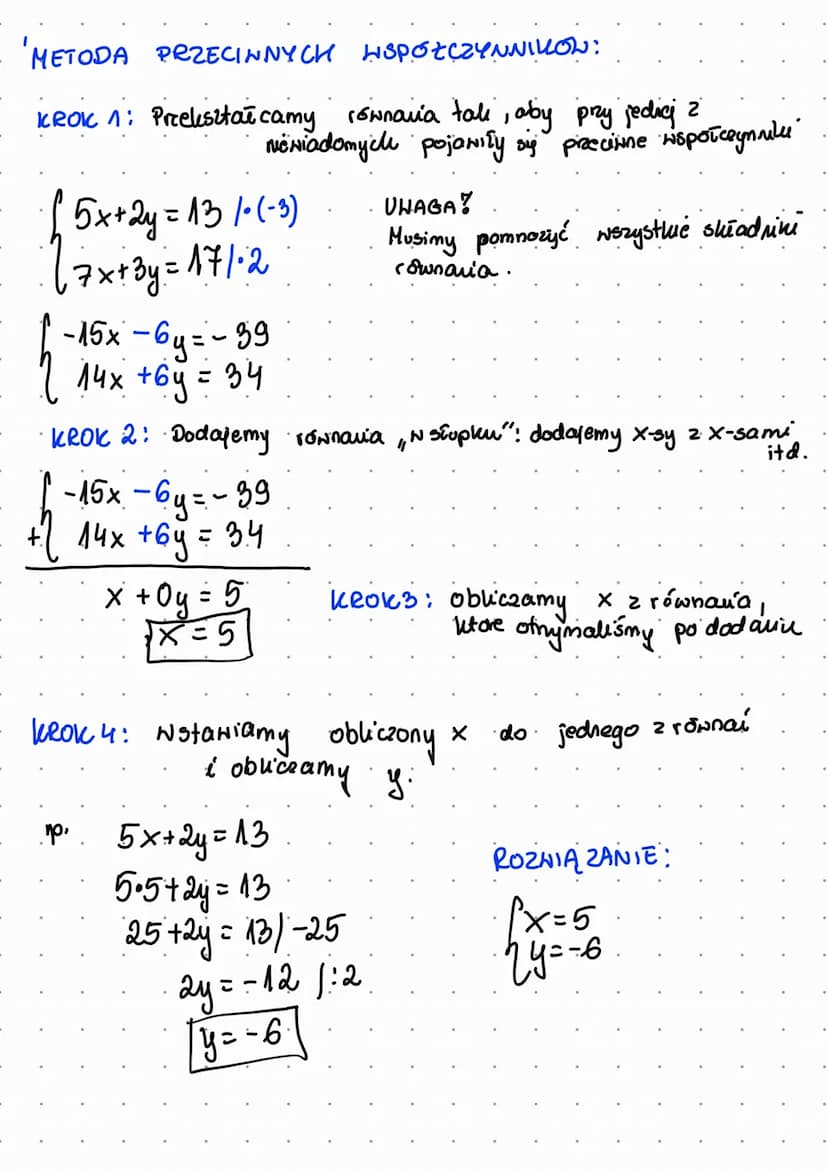 METODA PRZECIWNYCH WSPÓŁCZYNNIKÓW:
KROK 1: Przekształcamy równania tak, aby przy jednej z
niewiadomych pojawiły się przeciwne współczynniki
{ 5x+2y = 13 /·(-3)
7x+3y = 17 /·2
UWAGA!
Musimy pomnożyć wszystkie składniki
równania.
{ -15x -6y = -39
14x +6y = 34
KROK 2: Dodajemy równania „w słupku”: dodajemy x-sy z x-sami
itd.
{ -15x -6y = -39
+ 14x +6y = 34
x + 0y = 5
x = 5
KROK 3: obliczamy x z równania,
które otrzymaliśmy po dodaniu
KROK 4: Wstawiamy obliczony x do jednego z równań
i obliczamy y.
np. 5x+2y = 13
5·5+2y = 13
25+2y = 13 /-25
2y = -12 /:2
y = -6
ROZWIĄZANIE:
{ x = 5
y = -6